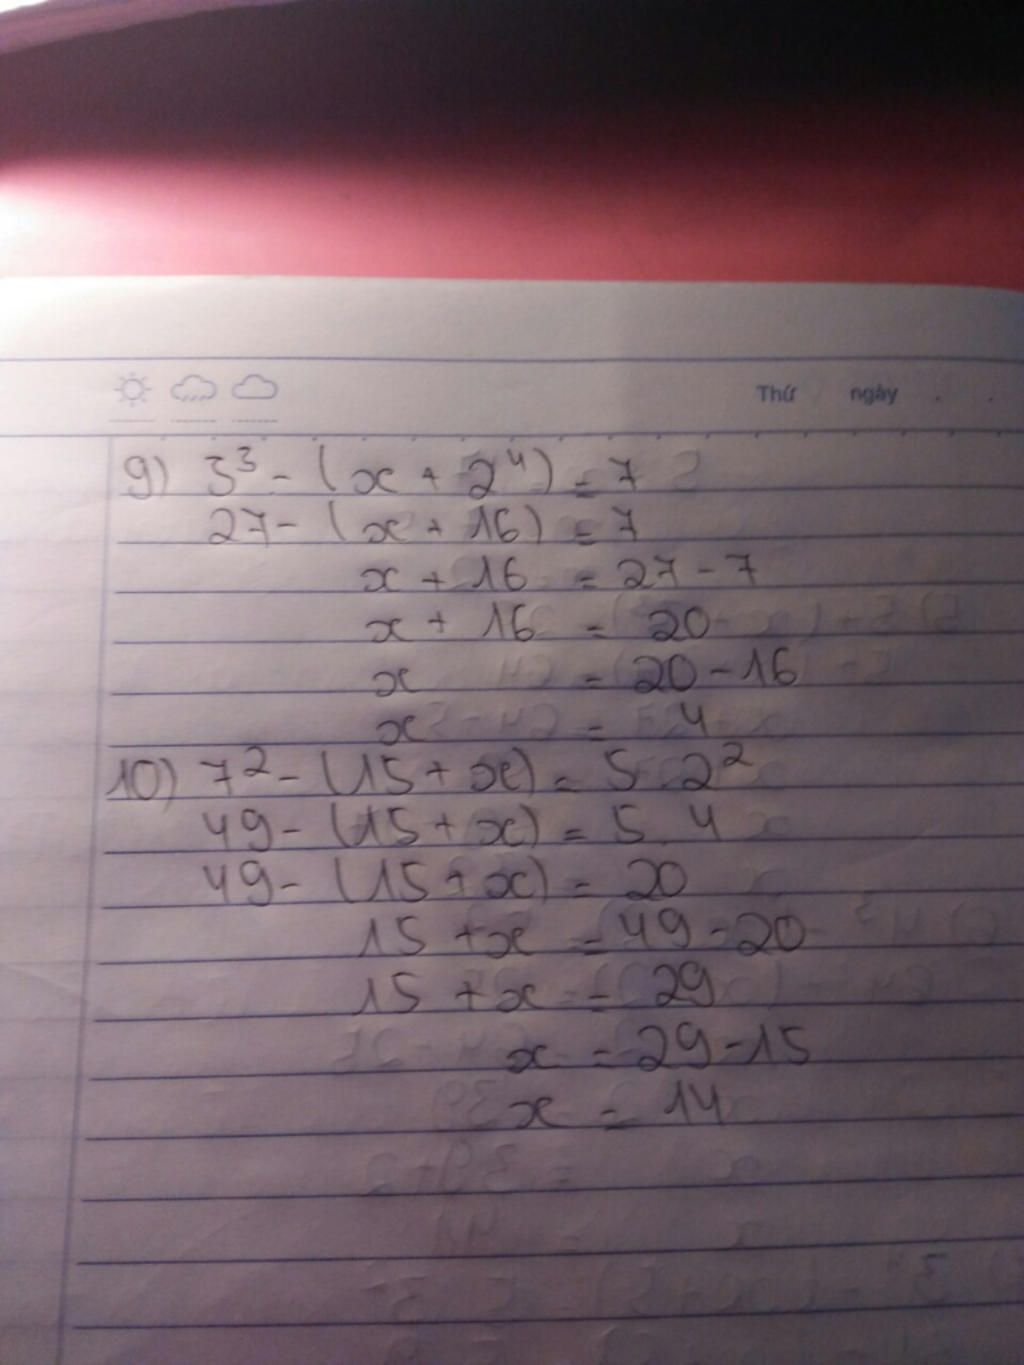 Thứ ngày
9) 3³ - (x + 2⁴) = 7
27 - (x + 16) = 7
x + 16 = 27 - 7
x + 16 = 20
x = 20 - 16
x = 4
10) 7² - (15 + x) = 5 . 2²
49 - (15 + x) = 5 . 4
49 - (15 + x) = 20
15 + x = 49 - 20
15 + x = 29
x = 29 - 15
x = 14